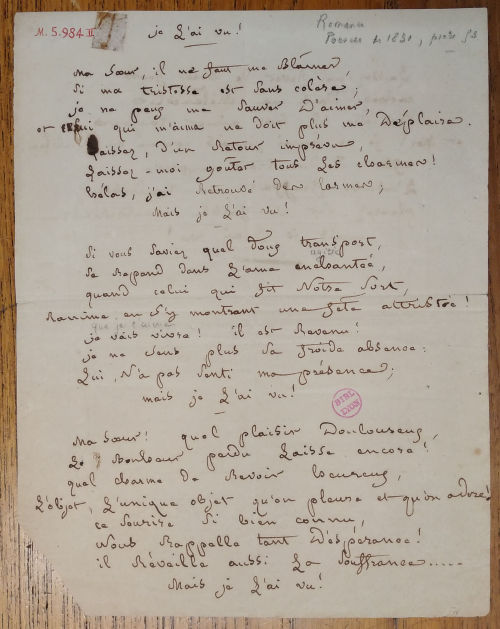 M. 5.984 II
Romance
Poesies de 1830, p.
je L'ai vu!
Ma Sœur, il ne faut me Blâmer,
Si ma tristesse est Sans colère;
je ne peux me Sauver D'aimer,
et celui qui m'aima ne doit plus me Déplaire.
Laissez, D'un Retour imprévu,
Laissez-moi goûter tous Les charmes!
hélas, j'ai Retrouvé Des larmes;
Mais je L'ai vu!
Si vous Saviez quel doux transport,
agitée
Se Répand dans L'ame enchantée,
quand celui qui fit Notre Sort,
Ranime en S'y montrant une fête attristée!
que je l'aime
je vais vivre! il est Revenu!
je ne Sens plus Sa froide absence:
Lui, N'a pas Senti ma présence;
mais je L'ai vu!
BIBL
LYON
Ma Sœur! quel plaisir Douloureux,
Le Bonheur perdu Laisse encore!
quel charme De Revoir heureux,
L'objet, L'unique objet qu'on pleure et qu'on adore!
ce Sourire Si bien connu,
Nous Rappelle tant D'espérance!
il Réveille aussi La Souffrance.....
Mais je L'ai vu!